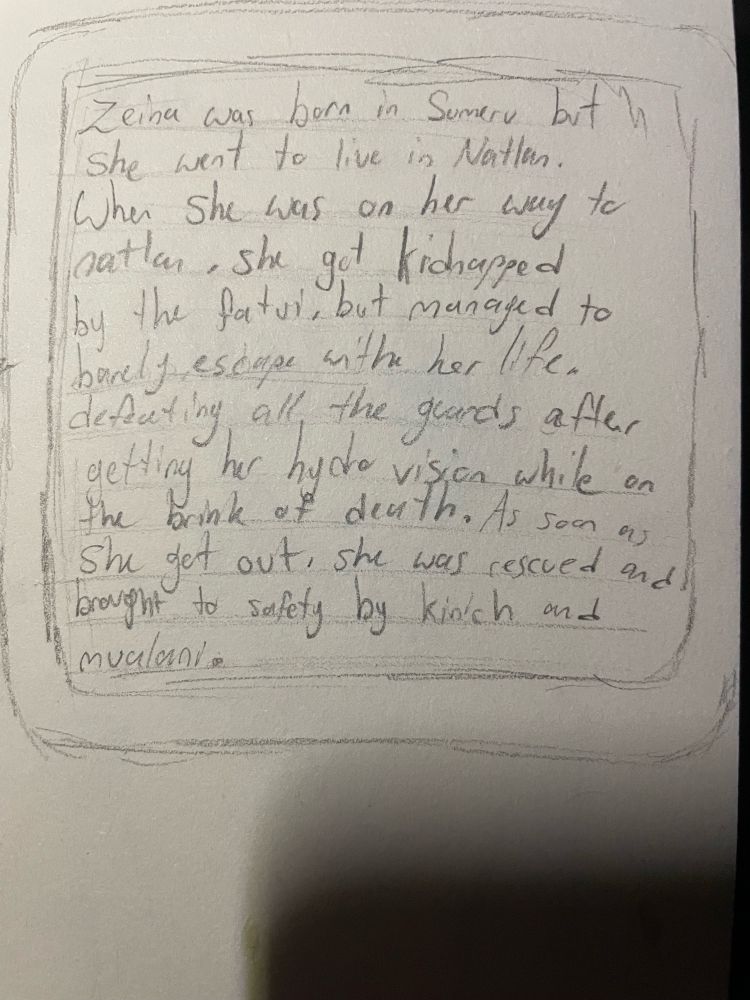 Zeina was born in Sumeru but
She went to live in Natlan.
When She was on her way to
natlan, she got kidnapped
by the fatui, but managed to
barely escape withe her life.
defeating all the guards after
getting her hydro vision while on
the brink of death. As soon as
She get out, she was rescued and
brought to safety by kinich and
mualani.